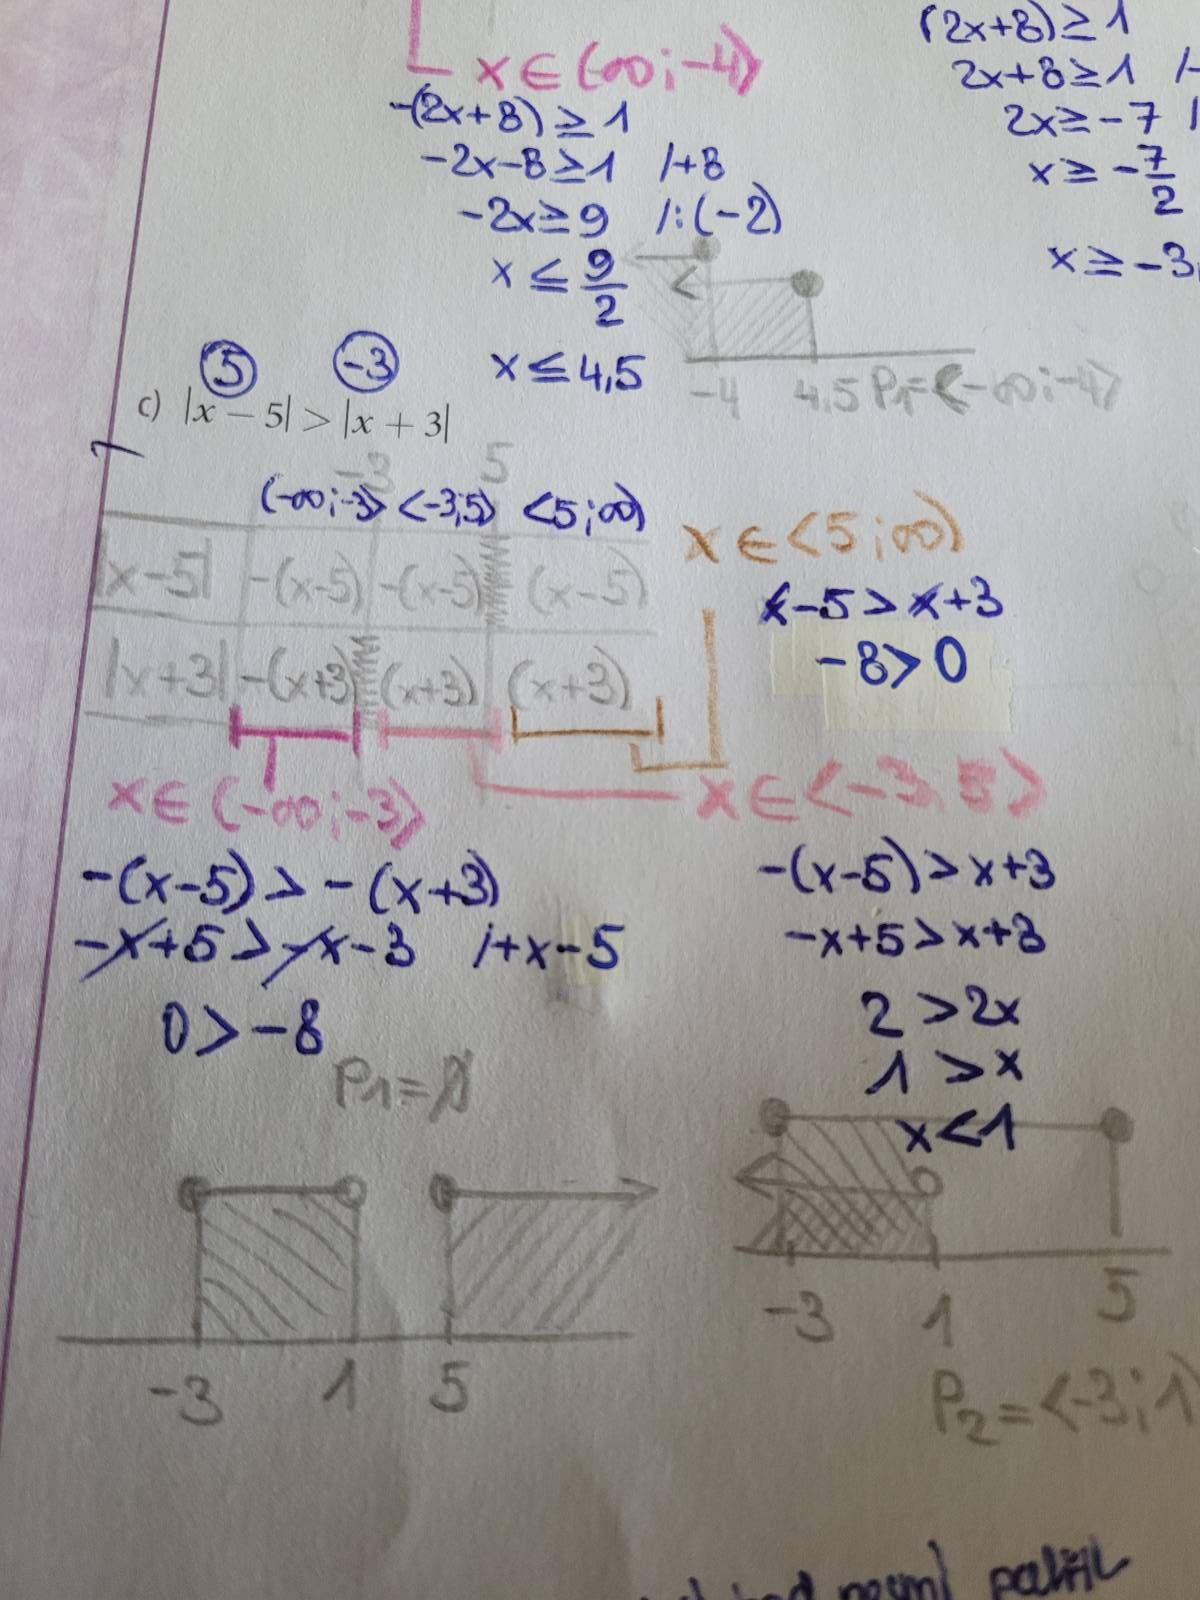 x ∈ (-∞; -4⟩
-(2x+8) ≥ 1
-2x-8 ≥ 1 /+8
-2x ≥ 9 /:(-2)
x ≤ 9/2
x ≤ 4,5
(2x+8) ≥ 1
2x+8 ≥ 1 /-
2x ≥ -7 /
x ≥ -7/2
x ≥ -3,
<
-4 4,5 P₁=(-∞;-4⟩
5 -3
c) |x − 5| > |x + 3|
-3 5
(-∞;-3⟩ ⟨-3;5⟩ ⟨5;∞)
|x-5| -(x-5) -(x-5) (x-5)
|x+3| -(x+3) (x+3) (x+3)
x ∈ ⟨5;∞)
x-5 > x+3
-8 > 0
x ∈ (-∞;-3⟩
-(x-5) > -(x+3)
-x+5 > -x-3 /+x-5
0 > -8
P₁=∅
x ∈ ⟨-3,5⟩
-(x-5) > x+3
-x+5 > x+3
2 > 2x
1 > x
x < 1
-3 1 5
-3 1 5
P₂=⟨-3;1)